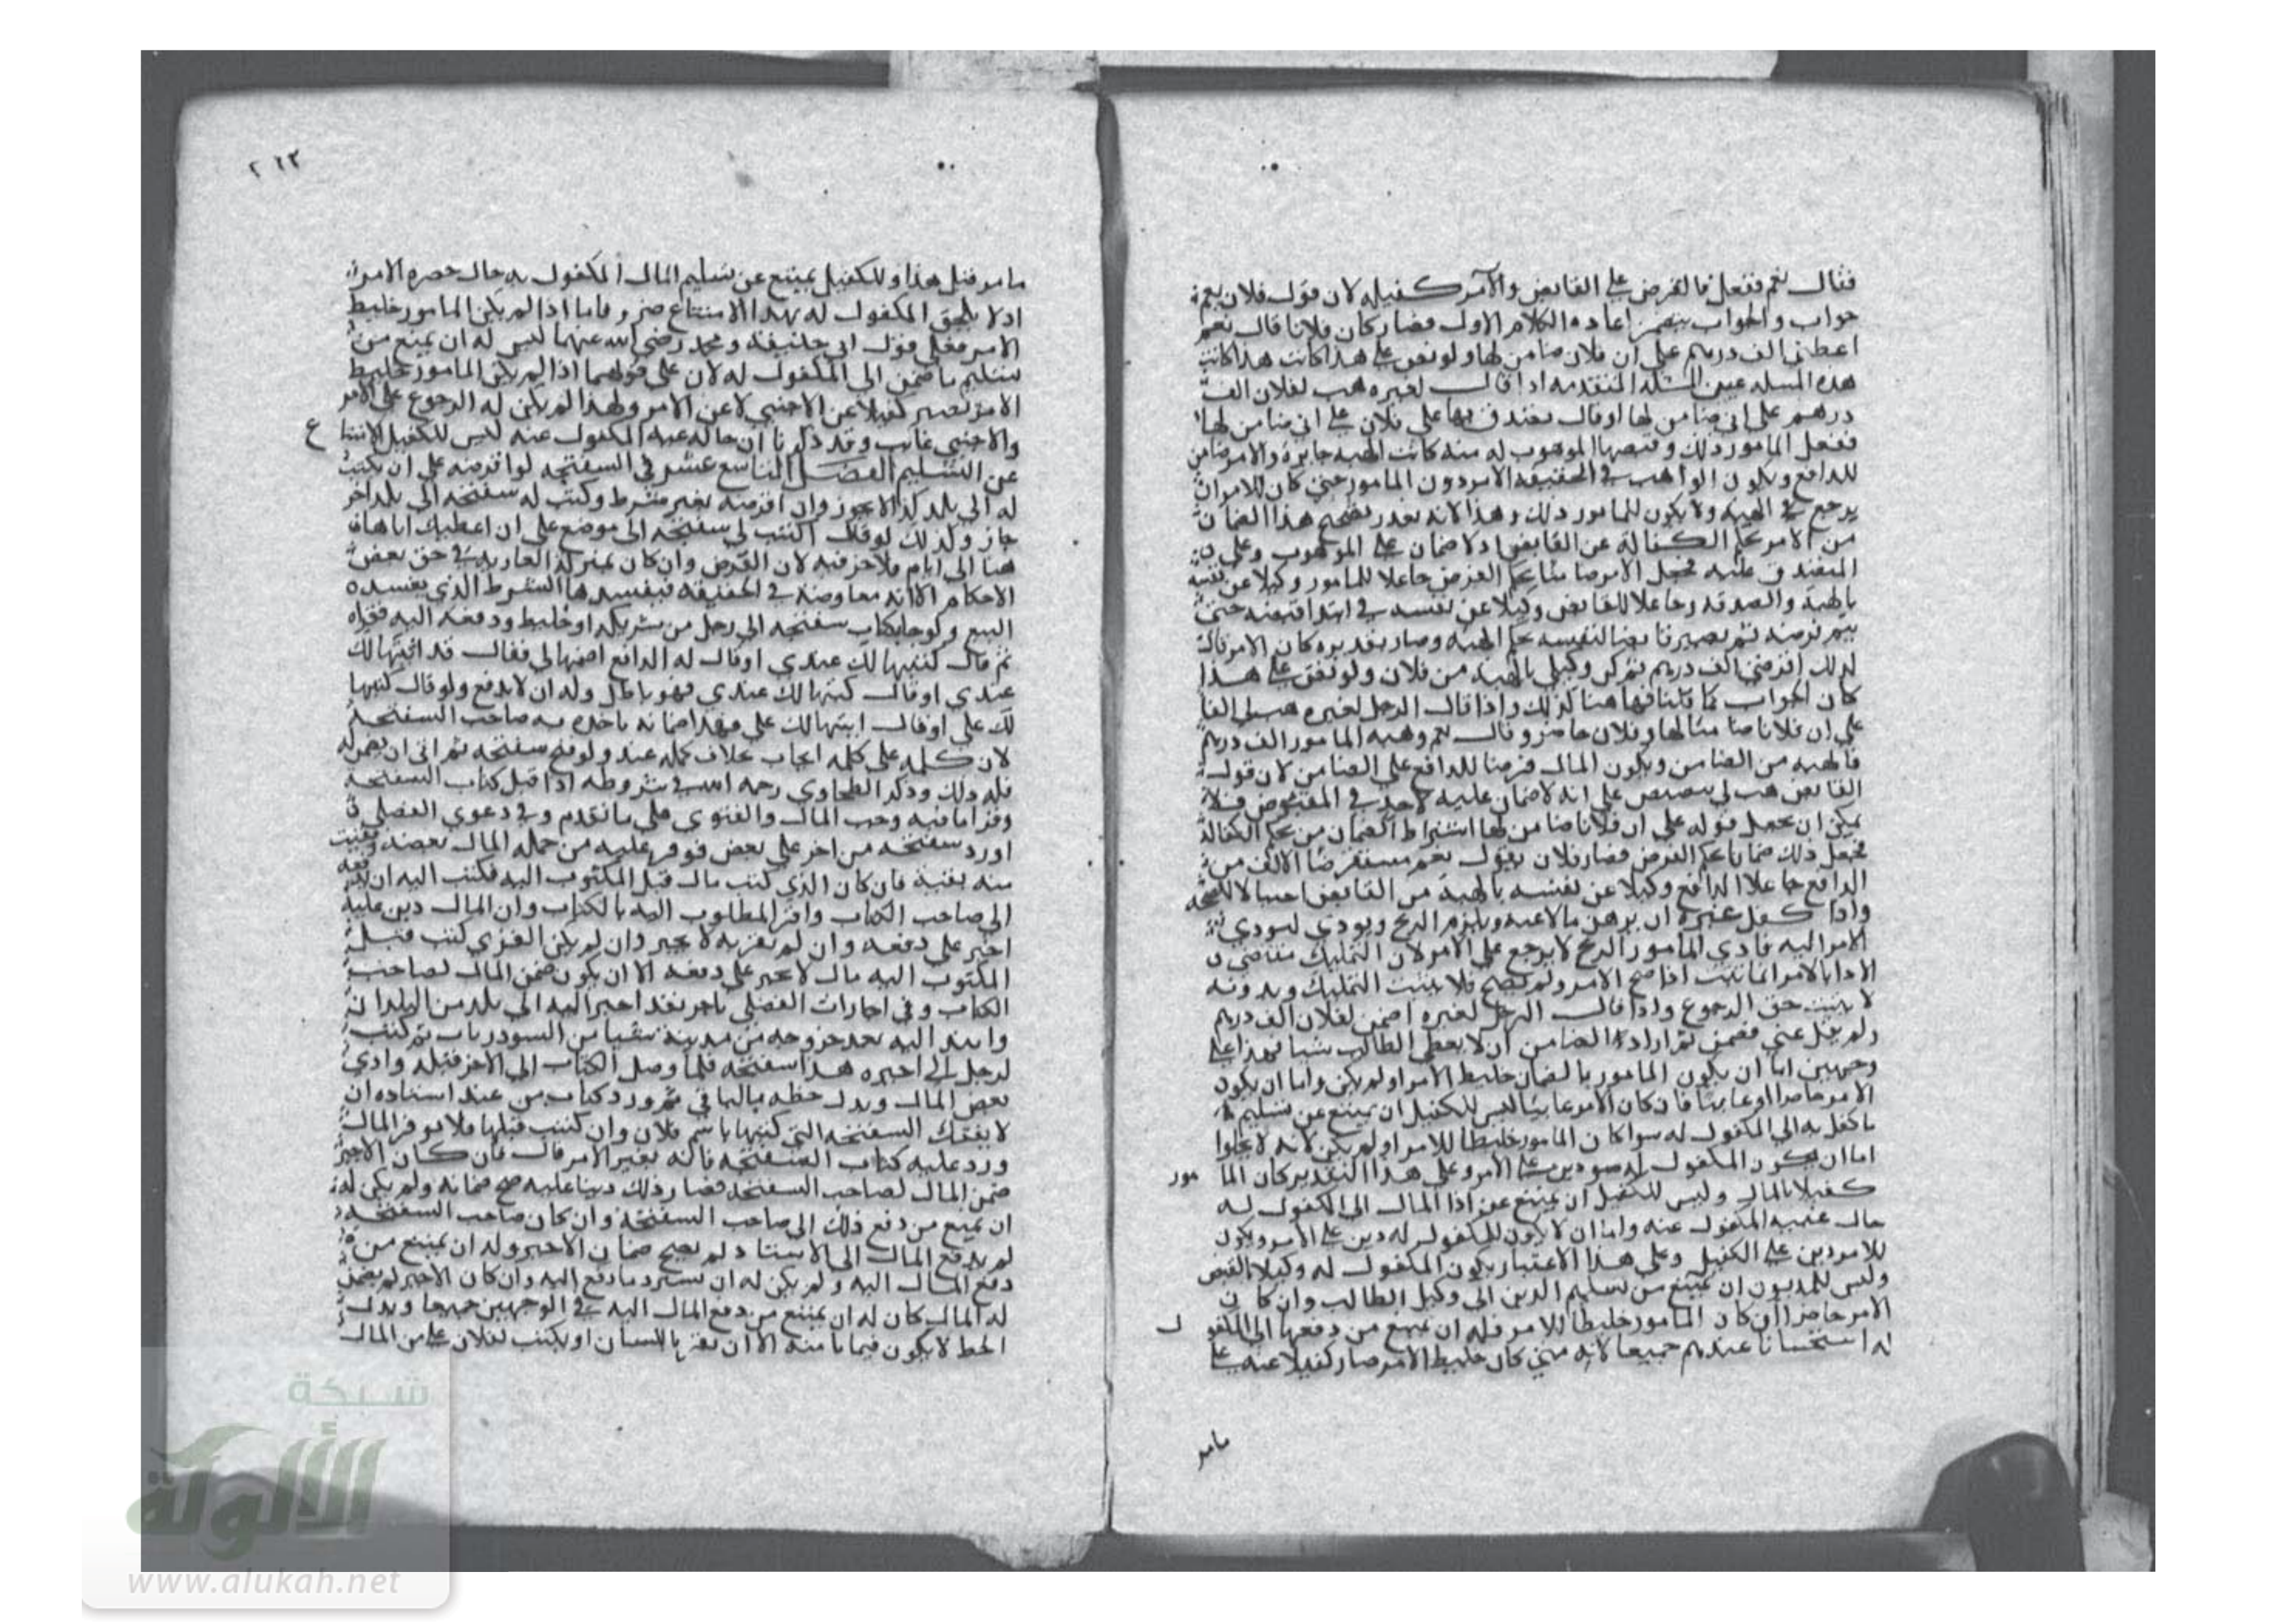 فقال نعم ففعل فالقرض على القابض والآمر كفيله لان قول فلان نعم
جواب والجواب يتضمن اعادة الكلام الاول فصار كان فلانا قال نعم
اعطني الف درهم على ان فلان ضامن لها ولو نص على هذا كانت هذا كانت
هذه المسله عين المسئلة المتقدمه اذا قال لغيره هب لفلان الف
درهم على اني ضامن لها او قال تصدق بها على فلان على اني ضامن لها
ففعل المامور ذلك وقبضها الموهوب له منه كانت الهبه جايزة والامر ضامن
للدافع ويكون الواهب في الحقيقه الامر دون المامور حتى كان للامر ان
يرجع في الهبه ولا يكون للمامور ذلك وهذا لانه تعذر تصحيح هذا الضمان
من الامر بحكم الكفالة عن القابض اذ لا ضمان على الموهوب وعلى
المتصدق عليه فجعل الامر ضامنا بحكم القرض جاعلا للمامور وكيلا عن نفسه
بالهبة والصدقه وجاعلا للقابض وكيلا عن نفسه في ابتدا قبضه حتى
يتم قرضه ثم يصير قابضا لنفسه بحكم الهبه وصار تقديره كان الامر قال
لذلك اقرضني الف درهم ثم كن وكيلي بالهبة من فلان ولو نص على هذا
كان الجواب كما قلنا فها هنا كذلك واذا قال الرجل لغيره هب لي الفا
على ان فلانا ضامنا لها وفلان حاضر وقال نعم وهبه المامور الف درهم
فالهبه من الضامن ويكون المال قرضا للدافع على الضامن لان قول
القابض هب لي تنصيص على انه لا ضمان عليه لاحد في المقبوض فلا
يمكن ان يجعل قوله على ان فلانا ضامن لها اشتراط الضمان من بحكم الكفالة
فجعل ذلك ضمانا بحكم القرض فصار فلان بقول نعم مستقرضا الالف من
الدافع جاعلا الدافع وكيلا عن نفسه بالهبة من القابض
واذا
الامر اليه فادي المامور لا يرجع على الامر لان التمليك
الادا بالامر انما يثبت اذا صح الامر ولم يصح فلا يثبت التمليك وبدونه
لا يثبت حق الرجوع واذا قال الرجل لغيره اضمن لفلان الف درهم
ولم يقل عني فضمن ثم اراد الضامن ان لا يعطي الطالب شيا فهذا على
وجهين اما ان يكون المامور بالضمان خليط الامر او لم يكن واما ان يكون
الامر حاضرا او غايبا فان كان الامر غايبا ليس للكفيل ان يمتنع عن تسليم
ما كفل به الى المكفول له سوا كان المامور خليطا للامر او لم يكن لانه لا يخلوا
اما ان يكون المكفول له دين على الامر وعلى هذا التقدير كان الما مور
كفيلا بالمال وليس للكفيل ان يمتنع عن ادا المال الى المكفول له
حال غيبة المكفول عنه واما ان لا يكون للمكفول له دين على الامر ويكون
للامر دين على الكفيل وعلى هذا الاعتبار يكون المكفول له وكيلا بالقبض
وليس للمديون ان يمتنع من تسليم الدين الى وكيل الطالب وان كان
الامر حاضرا ان كان المامور خليطا للامر فله ان يمتنع من دفعها الى المكفو ل
له استحسانا عندهم جميعا لانه متى كان خليط الامر صار كفيلا عنه على
مامر
٢٦٣
ما مر قبل هذا وللكفيل يمتنع عن تسليم المال المكفول به حال حضرة الامر
اذ لا يلحق المكفول له بهذا الامتناع ضرر فاما اذا لم يكن المامور خليط
الامر فعلى قول ابي حنيفة ومحمد رضي الله عنهما ليس له ان يمتنع من
تسليم ما ضمن الى المكفول له لان على قولهما اذا لم يكن المامور خليط
الامر يصير كفيلا عن الاجنبي لا عن الامر ولهذا لم يكن له الرجوع على الامر
والاجنبي غايب وقد ذكرنا ان حالة غيبة المكفول عنه ليس للكفيل الامتنا ع
عن التسليم الفصل التاسع عشر في السفتجه لو اقرضه على ان يكتب
له الى بلد كذا لا يجوز وان اقرضه بغير شرط وكتب له سفتجه الى بلد اخر
جاز وكذلك لو قال اكتب لي سفتجه الى موضع على ان اعطيك اياها
هنا الى ايام فلا خير فيه لان القرض وان كان بمنزلة العارية في حق بعض
الاحكام الا انه معاوضة في الحقيقة فيفسدها الشرط الذي يفسده
البيع ولو جا بكتاب سفتجه الى رجل من شريكه او خليط ودفعه اليه فقراه
ثم قال كتبتها لك عندي او قال له الدافع اضمنها لي فقال قد اثبتها لك
عندي او قال كتبتها لك عندي فهو باطل وله ان لا يدفع ولو قال كتبتها
لك علي او قال اثبتها لك علي فهذا ضمانه ياخذه به صاحب السفتجه
لان كلمة على كلمة ايجاب بخلاف كلمه عند ولو فتح سفتجه ثم ابى ان يضمن له
فله ذلك وذكر الطحاوي رحمه الله في شروطه اذا قبل كتاب السفتجة
وقرا ما فيه وجب المال والفتوى على ما تقدم وفي دعوى الفضلي
اورد سفتجه من اخر على بعض فوفر عليه من جملة المال بعضه وبقيت
منه بقية فان كان الذي كتب مال قبل المكتوب اليه فكتب اليه ان يدفعه
الى صاحب الكتاب واقر المطلوب اليه بالكتاب وان المال دين عليه
اجبر على دفعه وان لم يقر به لا يجبر وان لم يكن الذي كتب قبل
المكتوب اليه مال لا يجبر على دفعه الا ان يكون ضمن المال لصاحب
الكتاب وفي اجارات الفضلي تاجر بعد اجيرا اليه الى بلد من البلدان
اليه بعد خروجه من مدينة ثم كتب
لرجل الى اجيره هذا سفتجه فلما وصل الكتاب الى الاجير قبله وادى
بعض المال وبذل خطه بالباقي ثم ورد كتاب من عند استاده ان
لا يقبل السفتجه التي كتبتها باسم فلان وان كنت قبلتها فلا توفر المال
ورد عليه كتاب السفتجه فانه بغير الامر قال فان كان الاجير
ضمن المال لصاحب السفتجه فصار ذلك دينا عليه صح ضمانه ولم يكن له
ان يمتنع من دفع ذلك الى صاحب السفتجة وان كان صاحب السفتجة
لم يدفع المال الى الاستاد لم يصح ضمان الاجير وله ان يمتنع من
دفع المال اليه ولم يكن له ان يسترد ما دفع اليه وان كان الاجير لم يضمن
له المال كان له ان يمتنع من دفع المال اليه في الوجهين جميعا وبذل
الخط لا يكون ضمانا منه الا ان يقر باللسان او يكتب لفلان علي من المال
شبكة
الألوكة
www.alukah.net